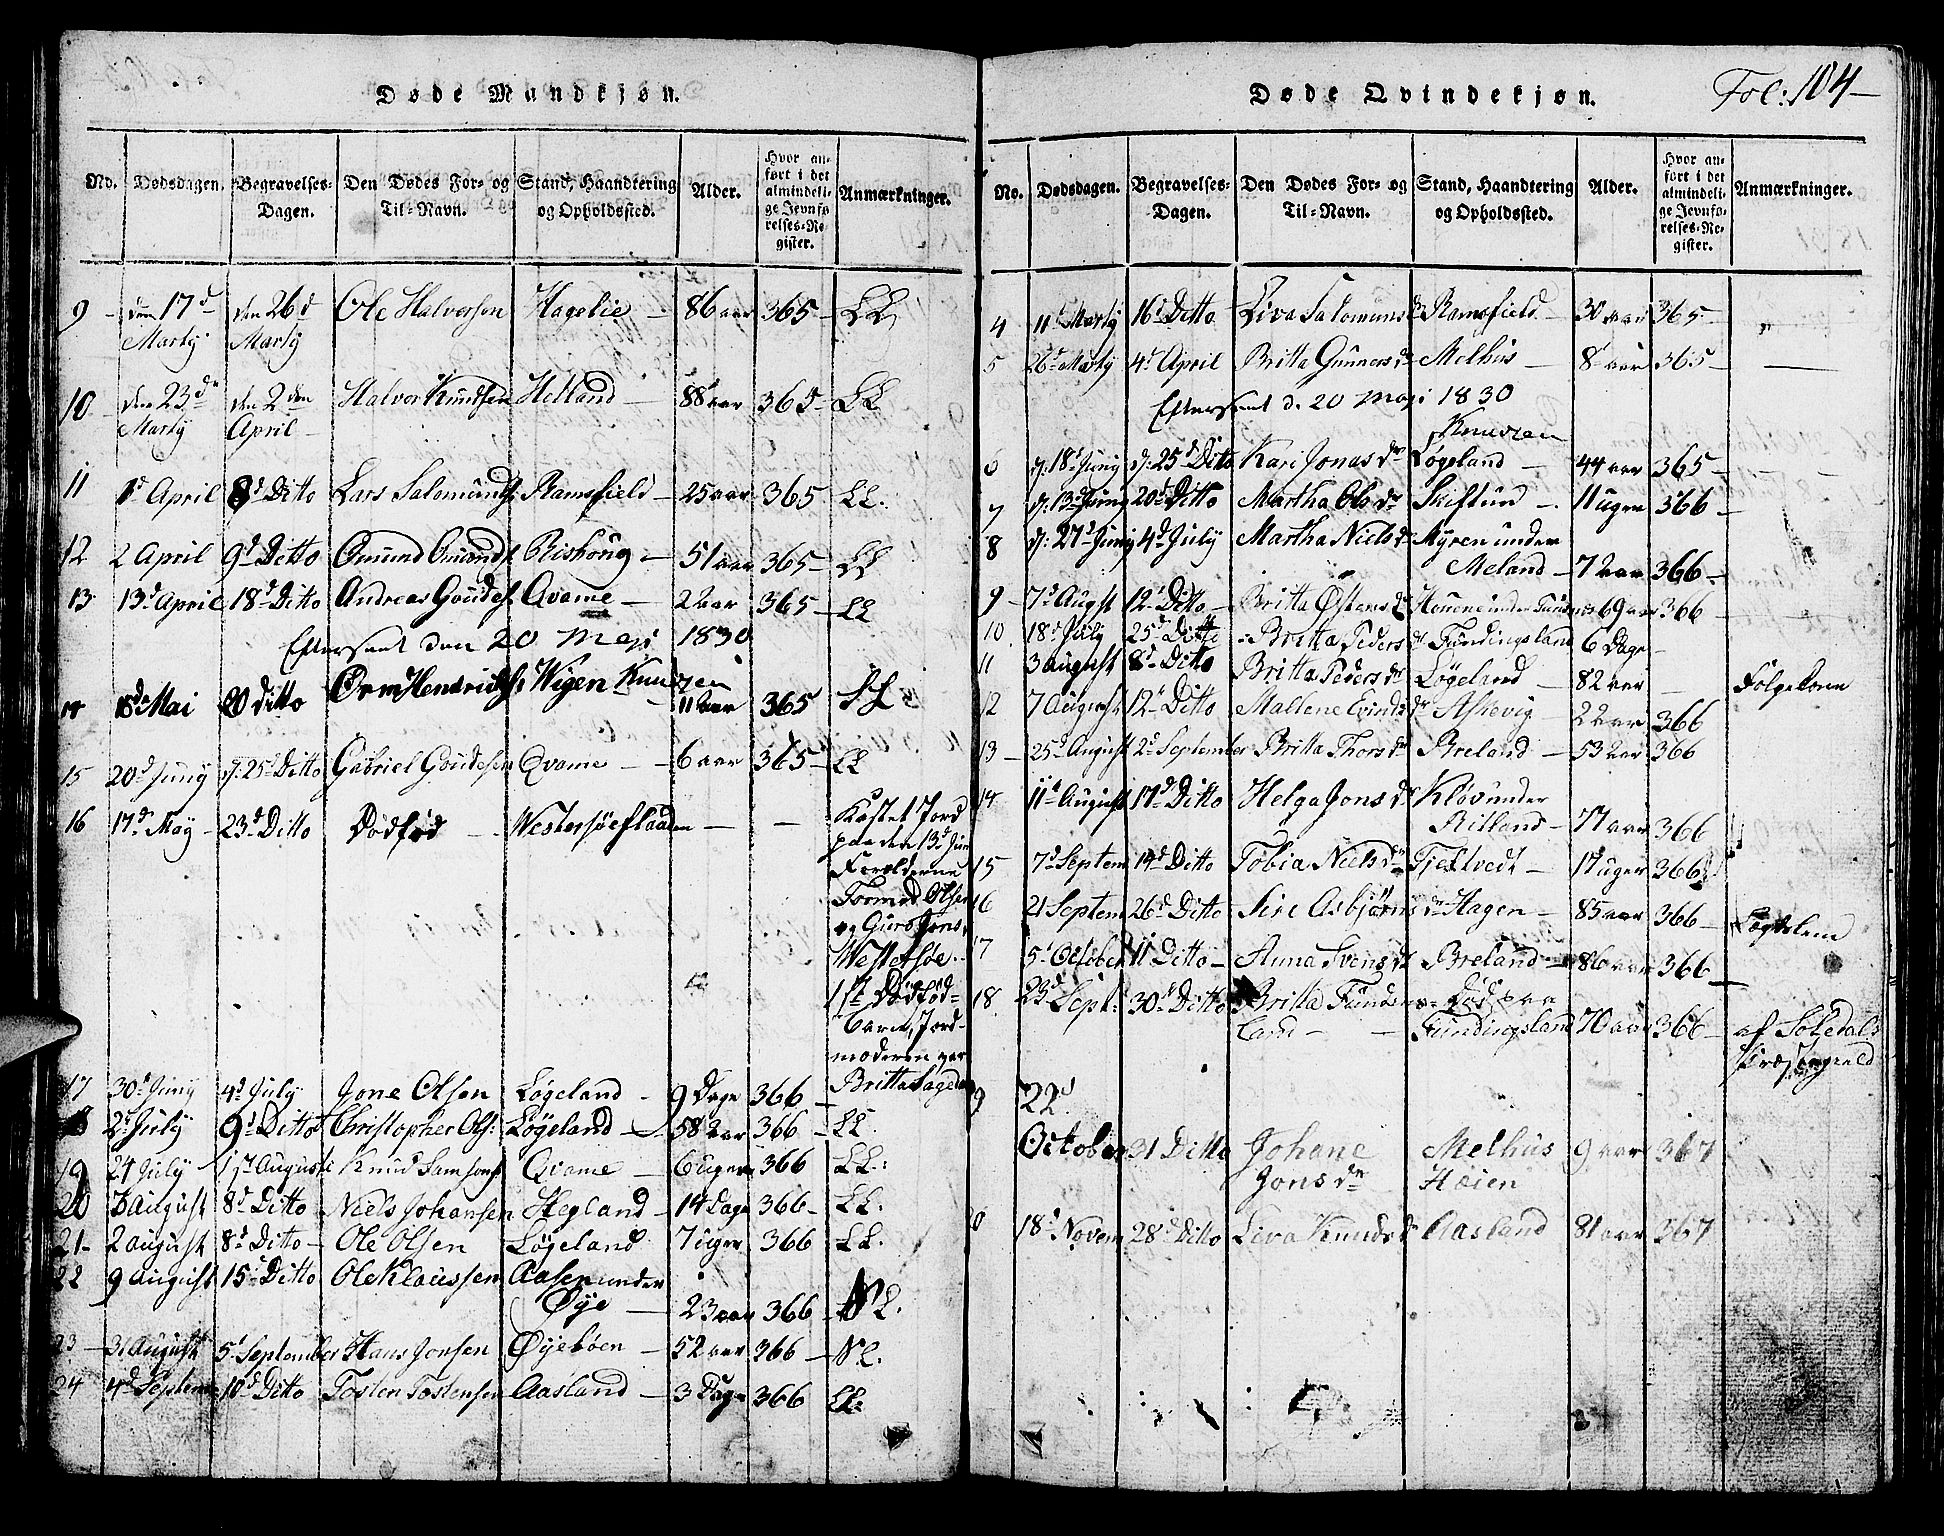 Døde Mandkjøn.
No. Dødsdagen. Begravelses-Dagen. Den Dødes For- og Til-Navn. Stand, Haandtering og Opholdssted. Alder. Hvor anført i det almindelige Jevnførelses-Register. Anmærkninger.
9 den 17d Martÿ den 26d Martÿ Ole Halversen Hagelie 86 aar 365 LL
10 den 23de Martÿ den 2den April Halvor Knudsen Helland 88 aar 365 LL
11 1d April 8d Ditto Lars Salomons. Ramsfield 25 aar 365 LL.
12 2 April 9d Ditto Omund Omunds. Rishoug 51 aar 365 LL
13 13d April 18d Ditto Andreas Goudes. Qvame 2 aar 365 LL
Eftersent den 20 Maji 1830
Knudzen
14 18de Mai 20 ditto Orm Hendrichs. Wigen 11 aar 365 LL
15 20d Junÿ d: 25d Ditto Gabriel Goudesen Qvame 6 aar 365 LL
16 17d May 23d Ditto Dødfød Westersøeflaaden
Kastet Jord
paa den 13d Juni
Forældrene
Tormod Olsen
og Guro Jons.
Westersøe.
1st Dødfød
barn, Jord-
moderen var
Britta
17 30d Junÿ 4d July Jone Olsen Løgeland 9 Dage 366
18 2d July 9d Ditto Christopher Ols: Løgeland 58 aar 366 LL
19 24 July 1st August Knud Samsons. Qvame 6 uger 366 LL.
20 3 August 8d Ditto Niels Johansen Hegland 14 Dage 366 LL.
21 2 august 8d Ditto Ole Olsen Løgeland 7 uger 366 LL.
22 9 august 15d Ditto Ole Klaussen Aasen under
Øye 23 aar 366 NL.
23 31 August 5d September Hans Jonsen Øyeboen 52 aar 366 NL.
24 4d Septem 10d Ditto Tosten Tostensen Aasland 3 Dage 366 LL.
Døde Qvindekjøn.
Fol: 104
No. Dødsdagen. Begravelses-Dagen. Den Dødes For- og Til-Navn. Stand, Haandtering og Opholdssted. Alder. Hvor anført i det almindelige Jevnførelses-Register. Anmærkninger.
4 11d Martÿ 16d Ditto Siva Salomons dr Ramsfield 30 aar 365 "
5 26d Martÿ 4d April Britta Gunners dr Melhus 8 aar 365
Eftersent d. 20 Maji 1830
Knudzen
6 d: 18d Junÿ d: 25d Ditto Kari Jonas dr Løgeland 44 aar 365
7 d: 13d Junÿ 20d Ditto Martha Ols dr 11 uger 366
8 d: 27d Junÿ 4d July Martha Niels dr Myren under
Meland 7 aar 366
9 7d Augst 12d Ditto Britta Østens dr 69 aar 366
10 18d July 25d Ditto Britta Peders dr Fundingsland 6 Dage
11 3 august 8d Ditto Britta Peders dr Løgeland 82 aar Følgekone
12 7 August 12d Ditto Mallene Evinds dr Askevig 2 aar 366
13 25d August 2d September Britta Thors dr Breland 53 aar 366
14 11d August 17d Ditto Helga Jons dr Kløv under
Ritland 77 aar 366
15 7d Septem 14d Ditto Tobia Niels dr Tjeltvedt 17 uger 366
16 21 Septem 26d Ditto Siri Asbjørns dr Hagen 85 aar 366 Lægdelem
17 5d October 11 Ditto Anna Svens dr Breland 86 aar 366
18 23d Sept: 30d Ditto Britta Fundings-
land Død paa
Fundingsland 70 aar 366 af
Præstegield
22d
October 31 Ditto Johane
Jons dr Melhus
Høien 9 aar 367
18d Novem 28d Ditto Siva Knuds dr Aasland 81 aar 367